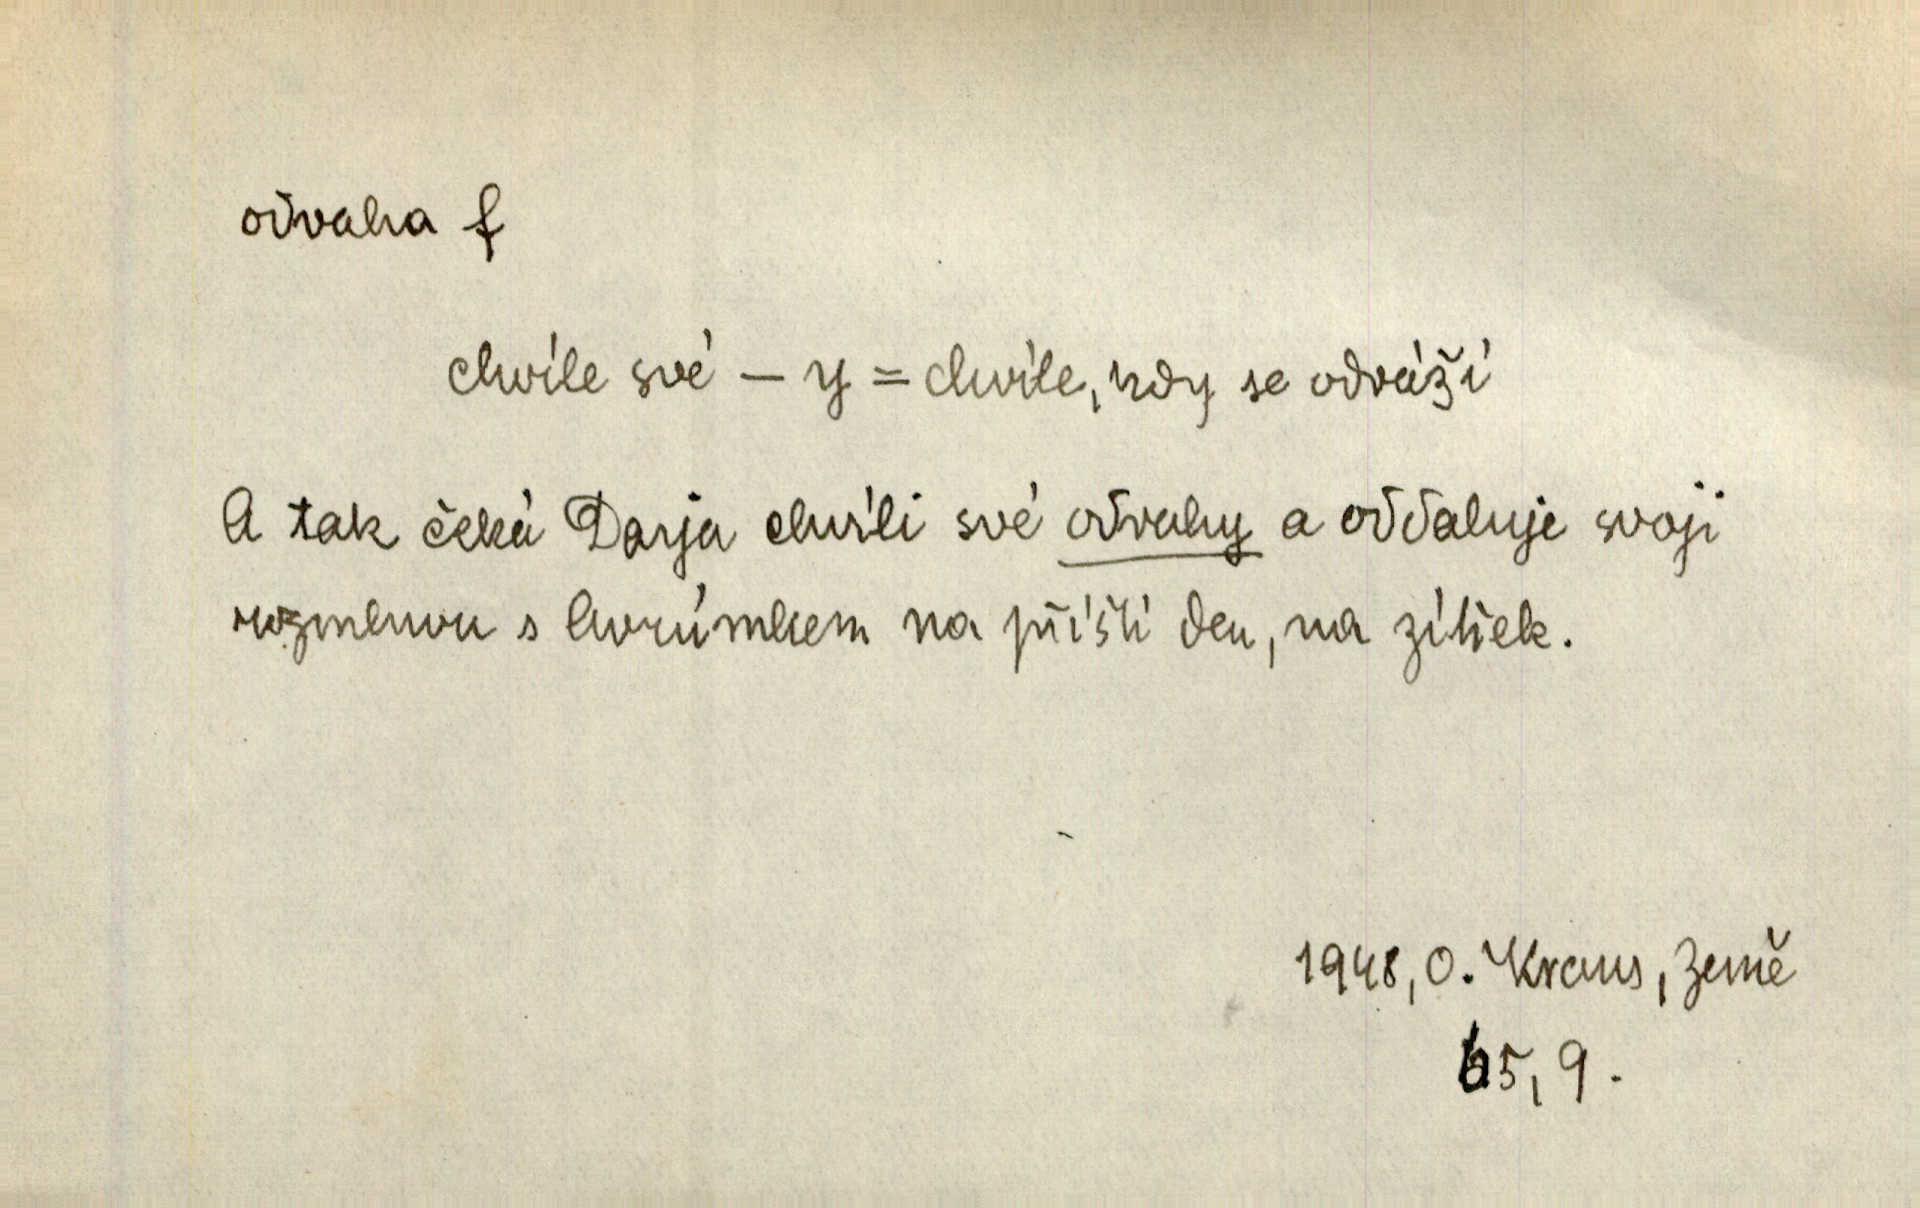 odvaha f
chvíle své – y = chvíle, kdy se odváží
A tak čeká Darja chvíli své odvahy a oddaluje svoji
rozmluvu s hvrúmkem na příští den, na zítřek.
1948, O. Kraus, Země
65, 9.